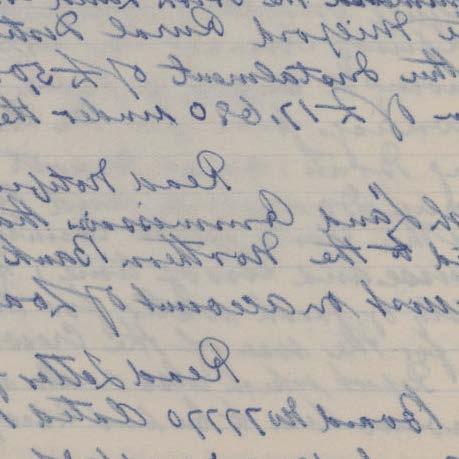 Milford Rural Dist
Instalment of £50
of £17,680 under the
Read Notific
Land Commission tha
to the Northern Bank
ment on account of Loa
Read Letter
Board No 77770 dated